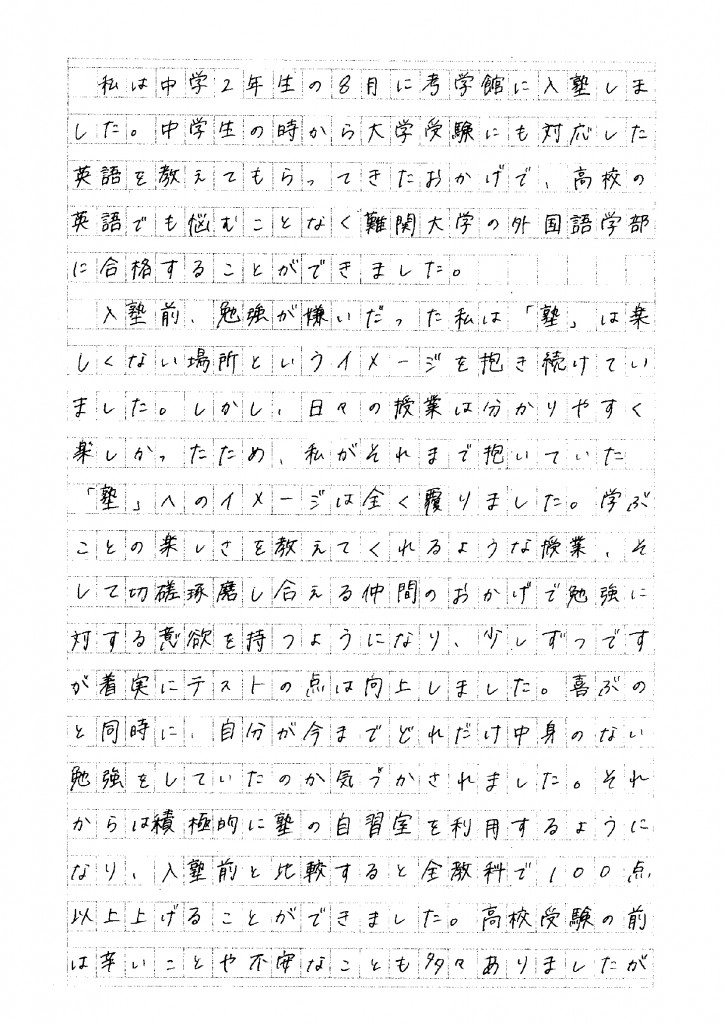 私は中学2年生の8月に考学館に入塾しま
した。中学生の時から大学受験にも対応した
英語を教えてもらってきたおかげで、高校の
英語でも悩むことなく難関大学の外国語学部
に合格することができました。
入塾前、勉強が嫌いだった私は「塾」は楽
しくない場所というイメージを抱き続けてい
ました。しかし、日々の授業は分かりやすく
楽しかったため、私がそれまで抱いていた
「塾」へのイメージは全く覆りました。学ぶ
ことの楽しさを教えてくれるような授業、そ
して切磋琢磨し合える仲間のおかげで勉強に
対する意欲を持つようになり、少しずつです
が着実にテストの点は向上しました。喜ぶの
と同時に、自分が今までどれだけ中身のない
勉強をしていたのか気づかされました。それ
からは積極的に塾の自習室を利用するように
なり、入塾前と比較すると全教科で100点
以上上げることができました。高校受験の前
は辛いことや不安なことも多々ありましたが